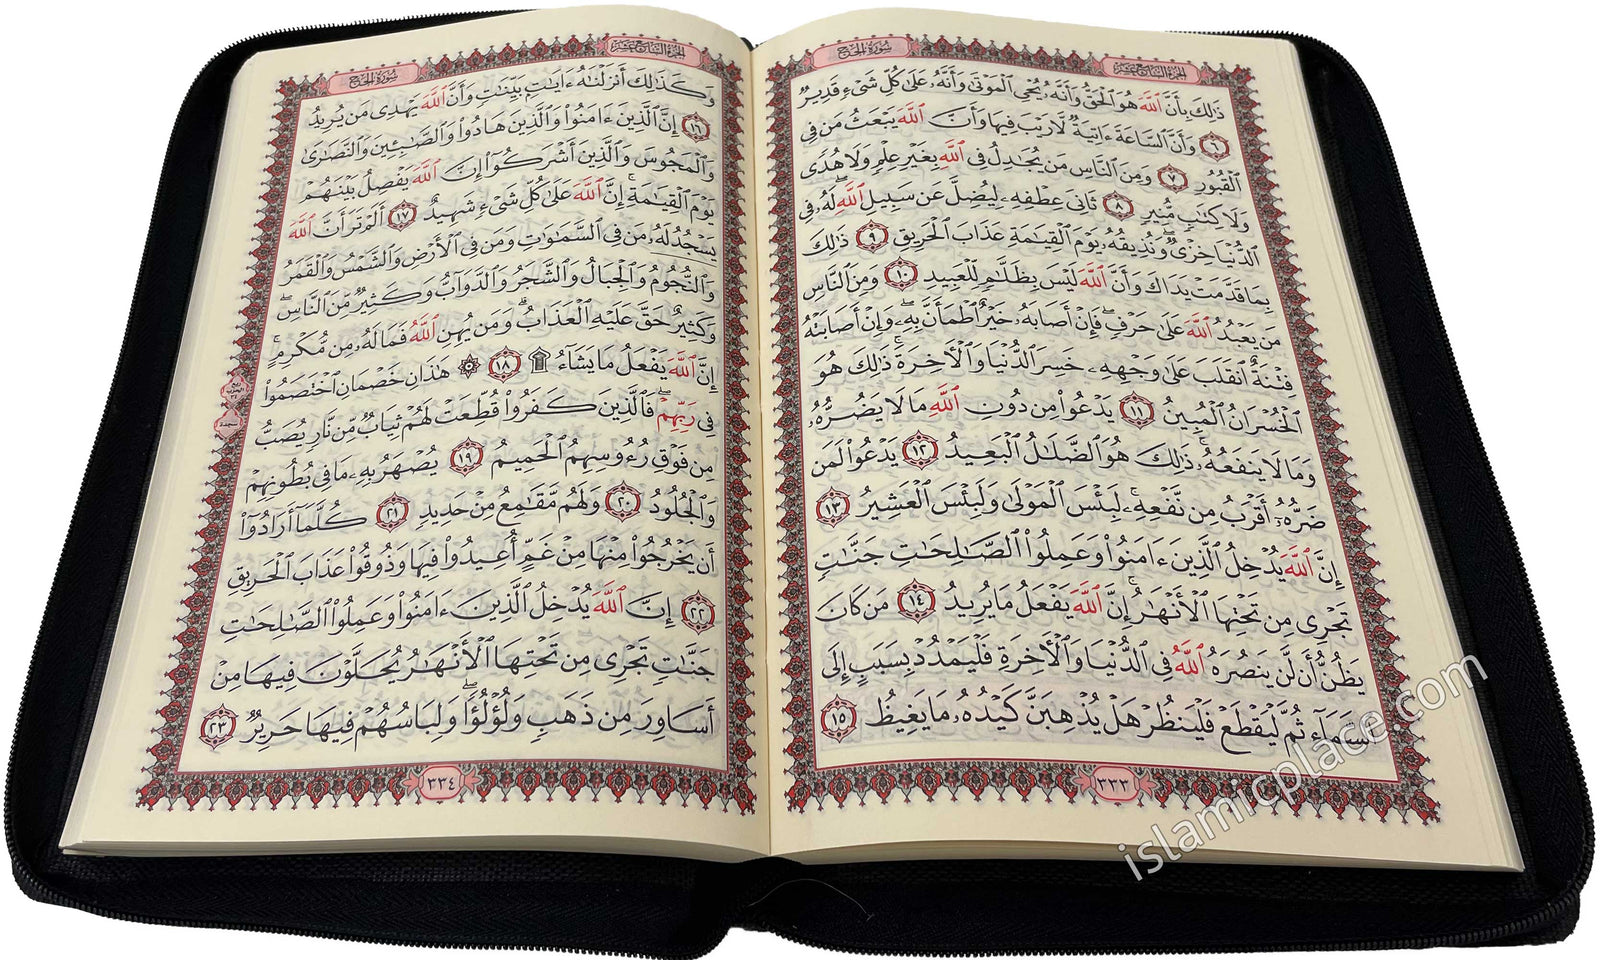 سُورَةُ الحَجِّ
الجُزْءُ السَّابِعَ عَشَرَ
ذَٰلِكَ بِأَنَّ ٱللَّهَ هُوَ ٱلْحَقُّ وَأَنَّهُۥ يُحْىِ ٱلْمَوْتَىٰ وَأَنَّهُۥ عَلَىٰ كُلِّ شَىْءٍ قَدِيرٌ
٦ وَأَنَّ ٱلسَّاعَةَ ءَاتِيَةٌ لَّا رَيْبَ فِيهَا وَأَنَّ ٱللَّهَ يَبْعَثُ مَن فِى
ٱلْقُبُورِ ٧ وَمِنَ ٱلنَّاسِ مَن يُجَٰدِلُ فِى ٱللَّهِ بِغَيْرِ عِلْمٍ وَلَا هُدًى
وَلَا كِتَٰبٍ مُّنِيرٍ ٨ ثَانِىَ عِطْفِهِۦ لِيُضِلَّ عَن سَبِيلِ ٱللَّهِ ۖ لَهُۥ فِى
ٱلدُّنْيَا خِزْىٌ ۖ وَنُذِيقُهُۥ يَوْمَ ٱلْقِيَٰمَةِ عَذَابَ ٱلْحَرِيقِ ٩ ذَٰلِكَ
بِمَا قَدَّمَتْ يَدَاكَ وَأَنَّ ٱللَّهَ لَيْسَ بِظَلَّٰمٍ لِّلْعَبِيدِ ١٠ وَمِنَ ٱلنَّاسِ
مَن يَعْبُدُ ٱللَّهَ عَلَىٰ حَرْفٍ ۖ فَإِنْ أَصَابَهُۥ خَيْرٌ ٱطْمَأَنَّ بِهِۦ ۖ وَإِنْ أَصَابَتْهُ
فِتْنَةٌ ٱنقَلَبَ عَلَىٰ وَجْهِهِۦ خَسِرَ ٱلدُّنْيَا وَٱلْءَاخِرَةَ ۚ ذَٰلِكَ هُوَ
ٱلْخُسْرَانُ ٱلْمُبِينُ ١١ يَدْعُوا۟ مِن دُونِ ٱللَّهِ مَا لَا يَضُرُّهُۥ
وَمَا لَا يَنفَعُهُۥ ۚ ذَٰلِكَ هُوَ ٱلضَّلَٰلُ ٱلْبَعِيدُ ١٢ يَدْعُوا۟ لَمَن
ضَرُّهُۥٓ أَقْرَبُ مِن نَّفْعِهِۦ ۚ لَبِئْسَ ٱلْمَوْلَىٰ وَلَبِئْسَ ٱلْعَشِيرُ ١٣
إِنَّ ٱللَّهَ يُدْخِلُ ٱلَّذِينَ ءَامَنُوا۟ وَعَمِلُوا۟ ٱلصَّٰلِحَٰتِ جَنَّٰتٍ
تَجْرِى مِن تَحْتِهَا ٱلْأَنْهَٰرُ ۚ إِنَّ ٱللَّهَ يَفْعَلُ مَا يُرِيدُ ١٤ مَن كَانَ
يَظُنُّ أَن لَّن يَنصُرَهُ ٱللَّهُ فِى ٱلدُّنْيَا وَٱلْءَاخِرَةِ فَلْيَمْدُدْ بِسَبَبٍ إِلَى
ٱلسَّمَآءِ ثُمَّ لْيَقْطَعْ فَلْيَنظُرْ هَلْ يُذْهِبَنَّ كَيْدُهُۥ مَا يَغِيظُ ١٥
٣٣٣
الجُزْءُ السَّابِعَ عَشَرَ
سُورَةُ الحَجِّ
وَكَذَٰلِكَ أَنزَلْنَٰهُ ءَايَٰتٍۭ بَيِّنَٰتٍ وَأَنَّ ٱللَّهَ يَهْدِى مَن يُرِيدُ
١٦ إِنَّ ٱلَّذِينَ ءَامَنُوا۟ وَٱلَّذِينَ هَادُوا۟ وَٱلصَّٰبِـِٔينَ وَٱلنَّصَٰرَىٰ
وَٱلْمَجُوسَ وَٱلَّذِينَ أَشْرَكُوٓا۟ إِنَّ ٱللَّهَ يَفْصِلُ بَيْنَهُمْ
يَوْمَ ٱلْقِيَٰمَةِ ۚ إِنَّ ٱللَّهَ عَلَىٰ كُلِّ شَىْءٍ شَهِيدٌ ١٧ أَلَمْ تَرَ أَنَّ ٱللَّهَ
يَسْجُدُ لَهُۥ مَن فِى ٱلسَّمَٰوَٰتِ وَمَن فِى ٱلْأَرْضِ وَٱلشَّمْسُ وَٱلْقَمَرُ
وَٱلنُّجُومُ وَٱلْجِبَالُ وَٱلشَّجَرُ وَٱلدَّوَآبُّ وَكَثِيرٌ مِّنَ ٱلنَّاسِ ۖ
وَكَثِيرٌ حَقَّ عَلَيْهِ ٱلْعَذَابُ ۗ وَمَن يُهِنِ ٱللَّهُ فَمَا لَهُۥ مِن مُّكْرِمٍ ۚ
إِنَّ ٱللَّهَ يَفْعَلُ مَا يَشَآءُ ۩ ١٨ ۞ هَٰذَانِ خَصْمَانِ ٱخْتَصَمُوا۟
فِى رَبِّهِمْ ۖ فَٱلَّذِينَ كَفَرُوا۟ قُطِّعَتْ لَهُمْ ثِيَابٌ مِّن نَّارٍ يُصَبُّ
مِن فَوْقِ رُءُوسِهِمُ ٱلْحَمِيمُ ١٩ يُصْهَرُ بِهِۦ مَا فِى بُطُونِهِمْ
وَٱلْجُلُودُ ٢٠ وَلَهُم مَّقَٰمِعُ مِنْ حَدِيدٍ ٢١ كُلَّمَآ أَرَادُوٓا۟
أَن يَخْرُجُوا۟ مِنْهَا مِنْ غَمٍّ أُعِيدُوا۟ فِيهَا وَذُوقُوا۟ عَذَابَ ٱلْحَرِيقِ
٢٢ إِنَّ ٱللَّهَ يُدْخِلُ ٱلَّذِينَ ءَامَنُوا۟ وَعَمِلُوا۟ ٱلصَّٰلِحَٰتِ
جَنَّٰتٍ تَجْرِى مِن تَحْتِهَا ٱلْأَنْهَٰرُ يُحَلَّوْنَ فِيهَا مِنْ
أَسَاوِرَ مِن ذَهَبٍ وَلُؤْلُؤًا ۖ وَلِبَاسُهُمْ فِيهَا حَرِيرٌ ٢٣
سجدة
٣٣٤
islamicplace.com